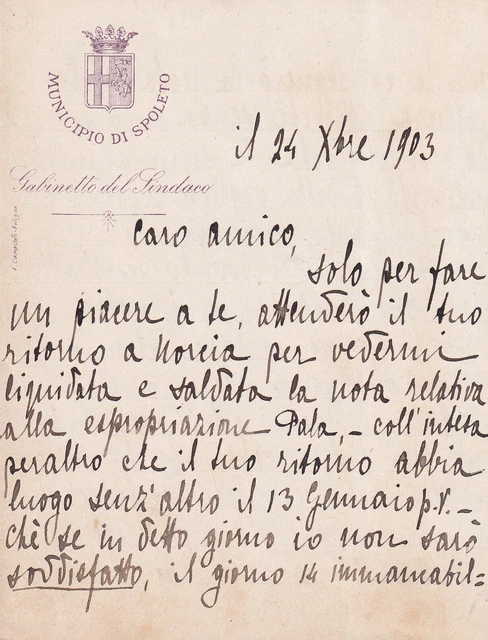 MUNICIPIO DI SPOLETO
il 24 Xbre 1903
Gabinetto del Sindaco
F. Campitelli-Foligno
Caro amico,
solo per fare
un piacere a te, attenderò il tuo
ritorno a Norcia per vedermi
liquidata e saldata la nota relativa
alla espropriazione Pala, - coll'intesa
peraltro che il tuo ritorno abbia
luogo senz'altro il 13 Gennaio p.v. -
chè se in detto giorno io non sarò
soddisfatto, il giorno 14 immancabil=